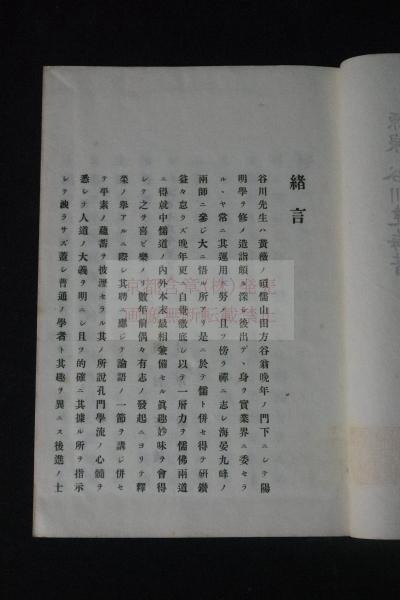 緒言
谷川先生ハ黄薇ノ碩儒山田方谷翁晩年ノ門下ニシテ陽
明學ヲ修メ造詣頗ル深シ後出デヽ身ヲ實業界ニ委セラ
ルヽヤ常ニ其運用ニ努メ且ツ傍ラ禪ニ志シ海晏九峰ノ
兩師ニ參ジ大ニ悟ル所アリ是ニ於テ儒ト併セ得テ研鑽
益々怠ラズ晩年更ニ自徹底シ以テ一層力ヲ儒佛兩道
ニ得就中儒道ノ内外本末最相兼備セル眞趣妙味ヲ會得
シテ之ヲ喜ビ樂メリ數年前偶々有志ノ發起ニヨリテ釋
菜ノ擧アルニ際シ其聘ニ應ジテ論語ノ一節ヲ講ジ併セ
テ平素ノ蘊蓄ヲ披瀝セラル其ノ所説孔門學流ノ心髓ヲ
悉シテ人道ノ大義ヲ明ニシ且ツ的確ニ其據ル所ヲ指示
シテ洩ラサズ蓋シ普通ノ學者ト其趣ヲ異ニス後進ノ士